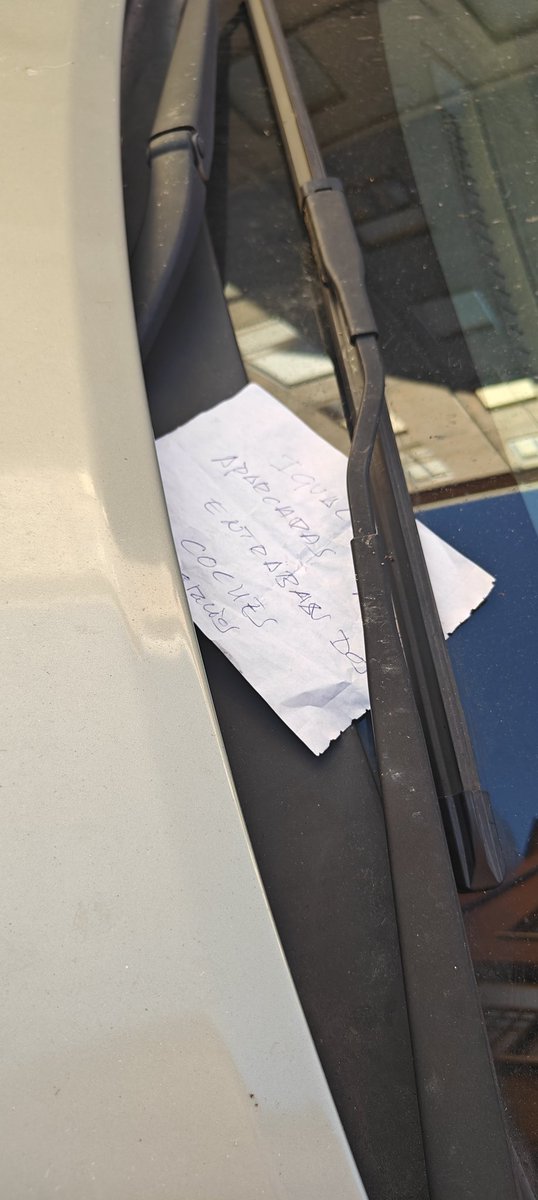 IGUAL
APARCADAS
ENTRABAN DOS
COCHES